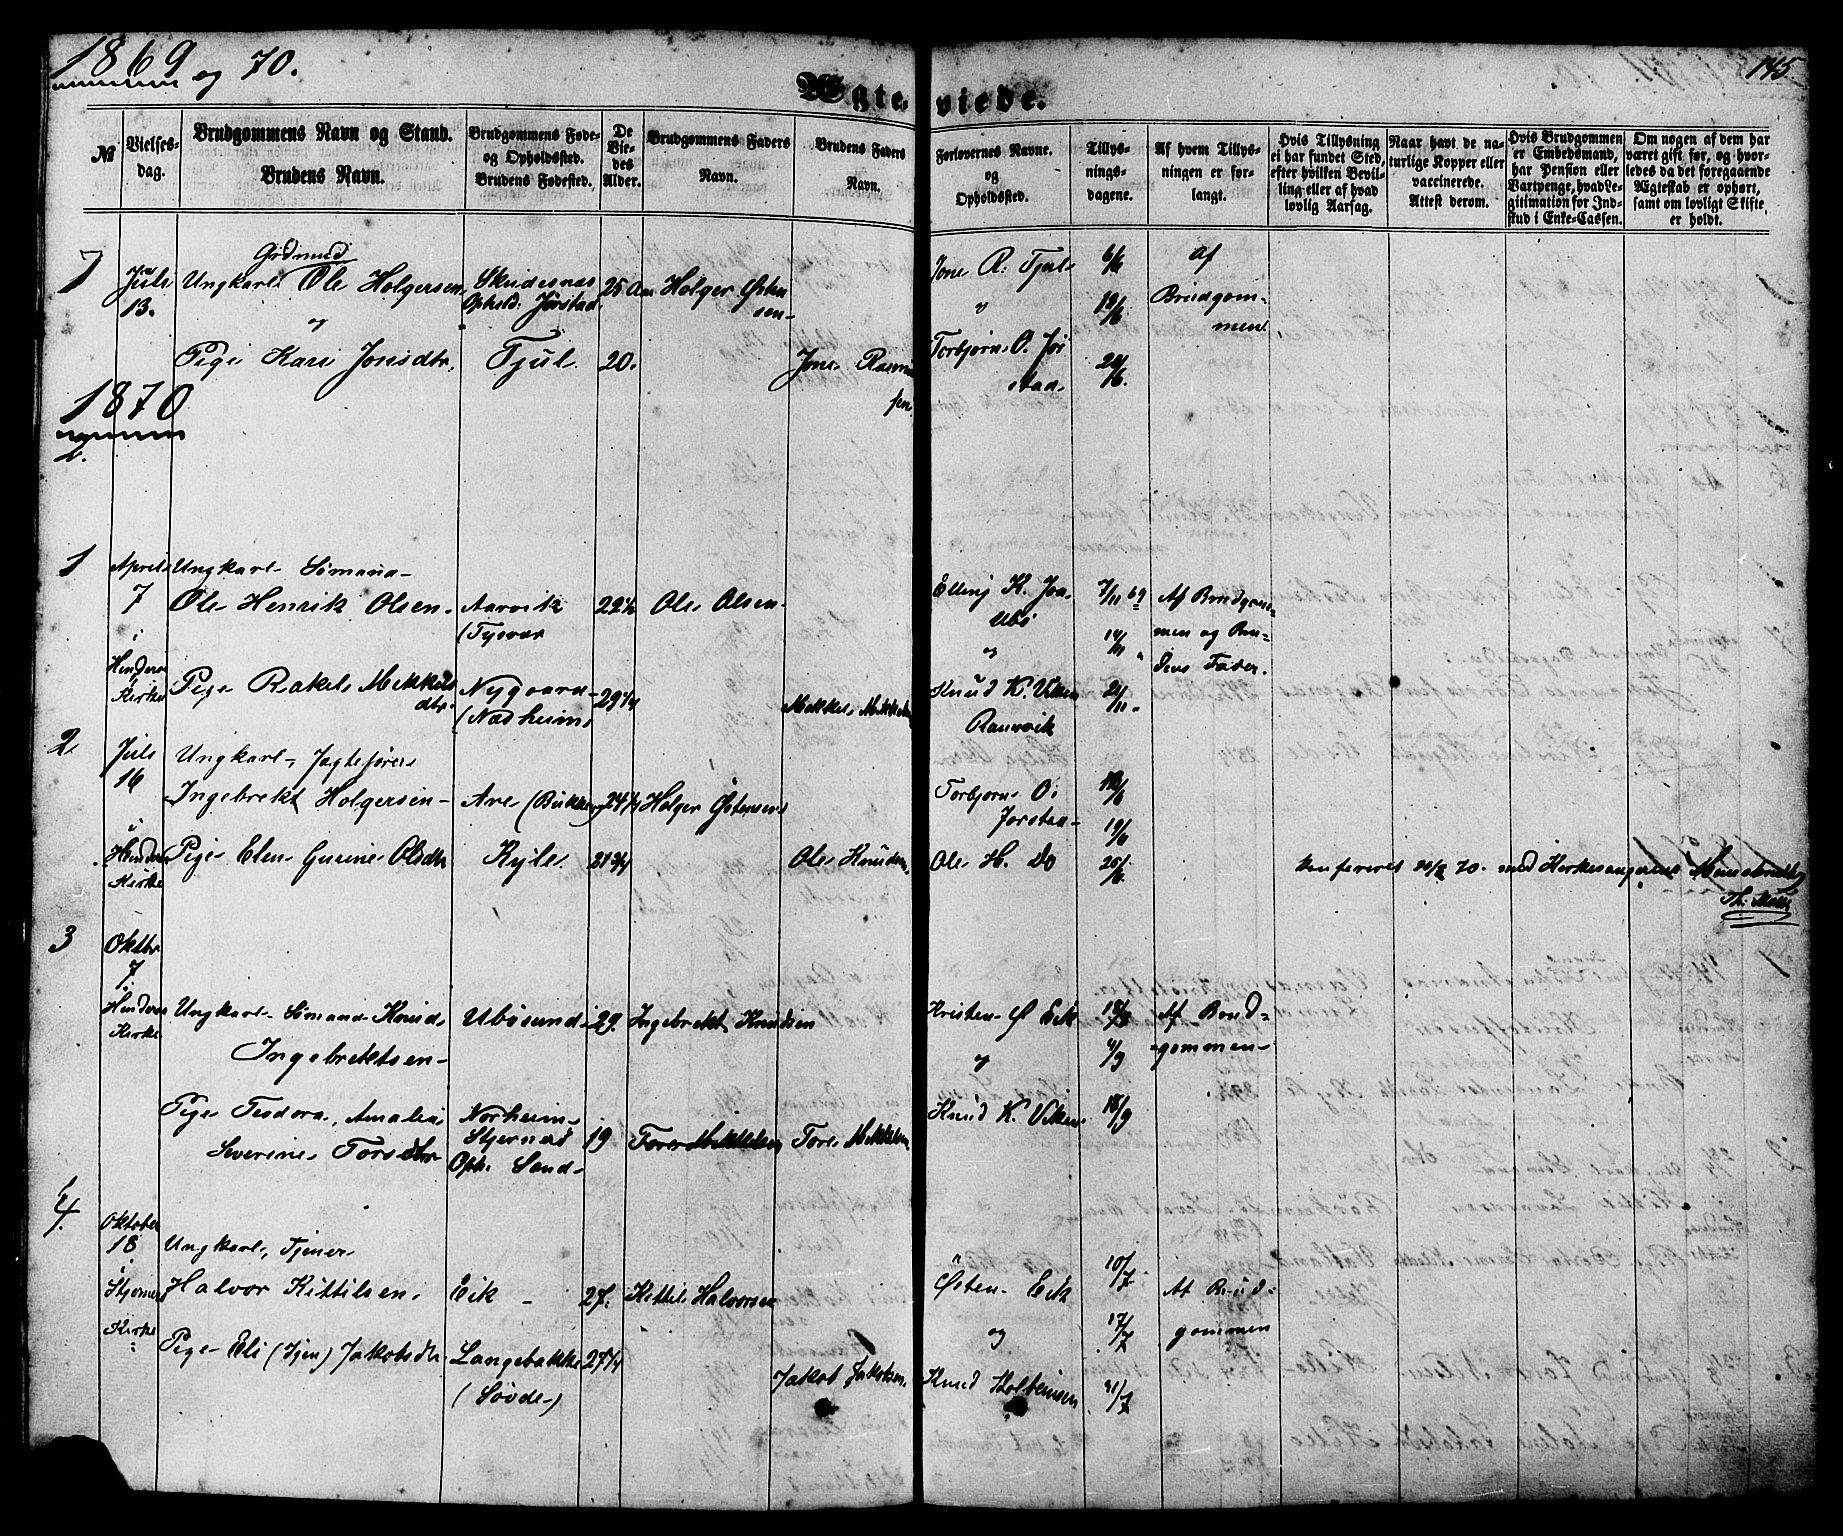 1869 og 70.
145
Ægteviede.
№
Vielses-
dag.
Brudgommens Navn og Stand.
Brudens Navn.
Brudgommens Føde-
og Opholdssted.
Brudens Fødested.
De
Vie-
des
Alder.
Brudgommens Faders
Navn.
Brudens Faders
Navn.
Forlovernes Navne.
og
Opholdssted.
Tillys-
nings-
dagene.
Af hvem Tillys-
ningen er for-
langt.
Hvis Tillysning
ei har fundet Sted,
efter hvilken Bevil-
ling eller af hvad
lovlig Aarsag.
Naar havt de na-
turlige Kopper eller
vaccinerede.
Attest derom.
Hvis Brudgommen
er Embedsmand,
har Pension eller
Vartpenge, hvad Le-
gitimation for Ind-
skud i Enke-Cassen.
Om nogen af dem har
været gift før, og hvor-
ledes da det foregaaende
Ægteskab er ophørt,
samt om lovligt Skifte
er holdt.
7
Juli
13.
Gydmund
Ungkarl Ole Holgersen
og
Pige Kari Jonsdtr.
Skudesnæs
Ophold: Jørstad
Tjul
25 Aar
20.
Holger Østen
sen
Jone Rasmus
sen
Jone R. Tjul
og
Torbjørn O. Jør
stad
6/6
12/6
20/6.
Af
Brudgom-
men.
1870
1
April
7
i
Hinderaa
Kirke
Ungkarl Sømand
Ole Henrik Olsen
Pige Rakel Mikkels
dtr.
Aarvik
(Tysvær
Nygaard
(Nædheim)
22½
29¼
Ole Olsen
Mikkel Mikkelsen
Elling K. Joa
Ubø
og
Knud K. Viken
Ramvik
7/11 69
14/11
21/11
Af Brudgom-
men og Bru-
dens Fader.
2
Juli
16
i
Hinderaa
Kirke
Ungkarl, Jagtefører
Ingebrekt Holgersen
Pige Elen Gurine Olsdtr
Are (Bukken)
Kyle
24¼
21¾
Holger Østensen
Ole Knudsen
Torbjørn O.
Jørstad
Ole H. Do
12/6
19/6
26/6.
Konfereret 70. med Kirkesangerens Ministerialbog
Th. Møller
3
Oktbr
7
i
Hinderaa
Kirke
Ungkarl Sømand Knud
Ingebrektsen
Pige Teodora, Amalia
Severine Torsdtr
Ubøsund
Norheim
Stjernæs
Oph. Sand
29.
19
Ingebrekt Knudsen
Tore Mikkelsen
Tore Mikkelsen
Kristen Ø Eik
og
Knud K. Viken
18/9
Af Brud-
gommen
4.
Oktober
18
i
Stjernerø
Kirke
Ungkarl, Tjener
Halvor Kittilsen
Pige Eli (Tjen) Jakobsdtr
Eik
Langebakke
(Søvde)
27.
27¼
Kittil Halvorsen
Jakob Jakobsen
Østen Eik
og
Knud Kolbeinsen
10/7
17/7
Af Brud-
gommen